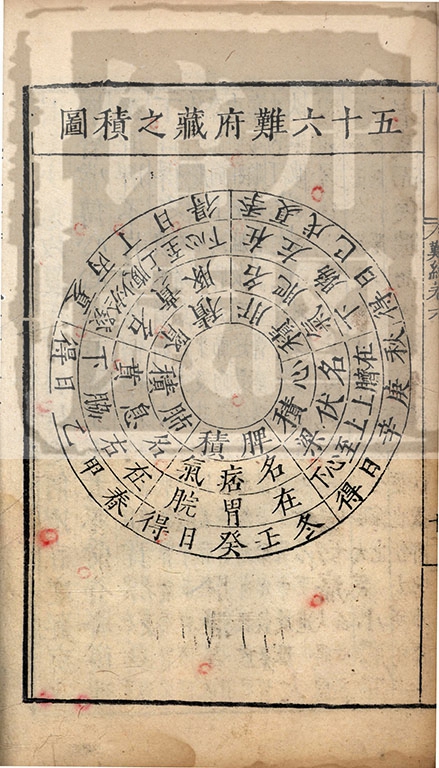 五十六難府藏之積圖
肝積
名肥氣
在左脇下
季夏戊己日得
心積
名伏梁
在臍上上至心下
秋庚辛日得
脾積
名痞氣
在胃脘
冬壬癸日得
肺積
名息賁
在右脇下
春甲乙日得
腎積
名賁豚
發於腹上至心下
夏丙丁日得